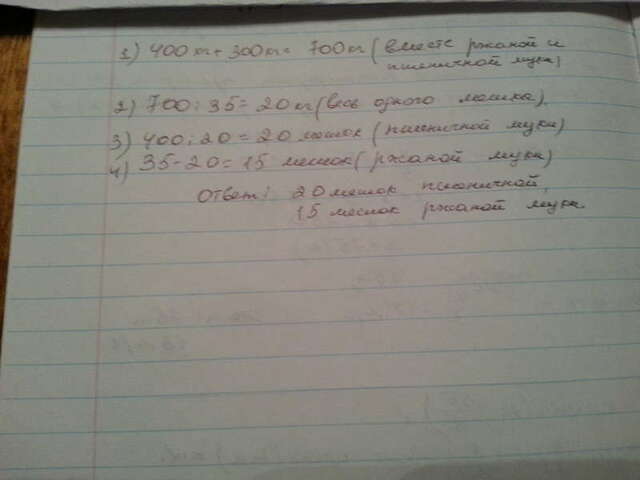 1) 400 кг + 300 кг = 700 кг (вместе ржаной и
пшеничной муки)
2) 700 : 35 = 20 кг (вес одного мешка)
3) 400 : 20 = 20 мешок (пшеничной муки)
4) 35 - 20 = 15 мешок (ржаной муки)
Ответ: 20 мешок пшеничной,
15 мешок ржаной муки